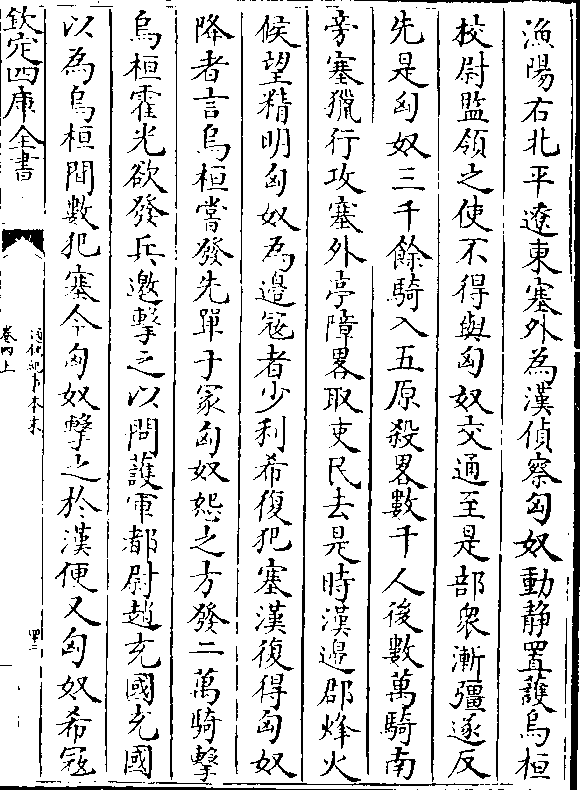 漁陽右北平遼東塞外為漢偵察匈奴動靜置護烏桓
校尉監領之使不得與匈奴交通至是部衆漸彊遂反
先是匈奴三千餘騎入五原殺畧數千人後數萬騎南
旁塞獵行攻塞外亭障畧取吏民去是時漢邊郡烽火
候望精明匈奴為邊冦者少利希復犯塞漢復得匈奴
降者言烏桓嘗發先單于冢匈奴怨之方發二萬騎擊
烏桓霍光欲發兵邀擊之以問護軍都尉趙充國充國
以為烏桓間數犯塞今匈奴擊之於漢便又匈奴希冦
欽定四庫全書
通鑑紀事本末
卷四上